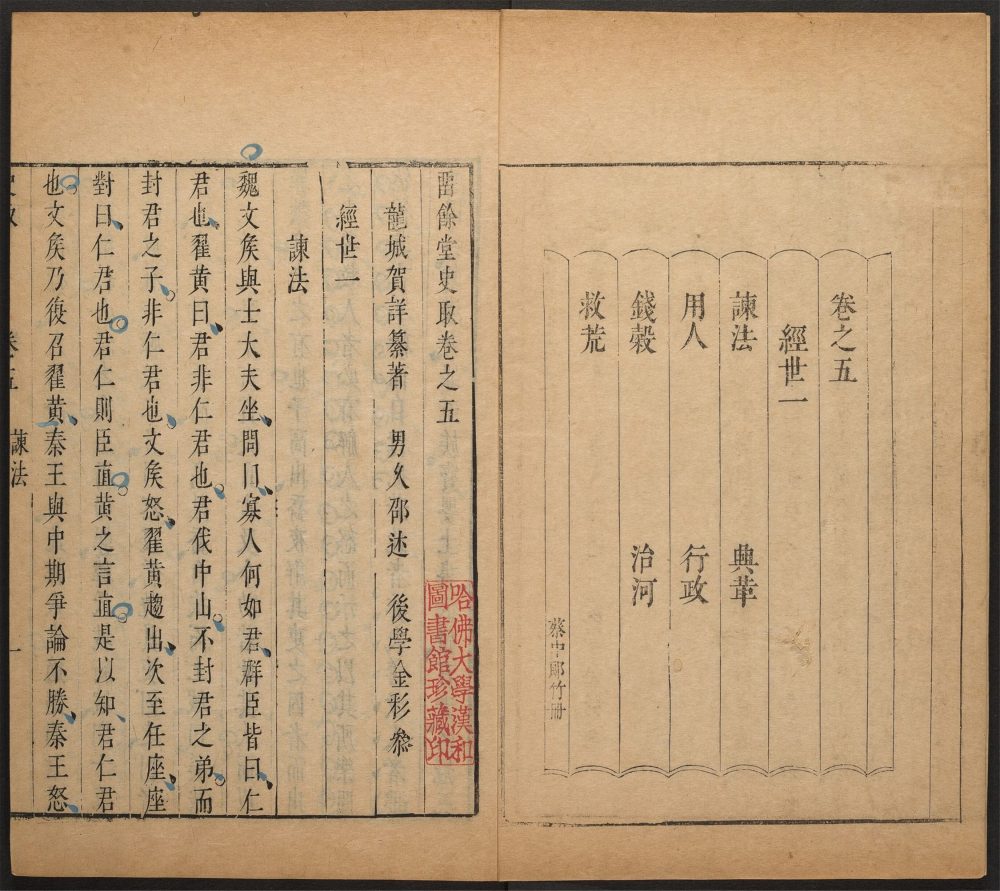 卷之五
經世一
諫法 典章
用人 行政
錢穀 治河
救荒
蔡中郎竹冊
留餘堂史取卷之五
龍城賀詳纂著 男久邵述 後學金彩叅
經世一
諫法
魏文矦與士大夫坐問曰寡人何如君群臣皆曰仁
君也翟黄曰君非仁君也君伐中山不封君之弟而
封君之子非仁君也文矦怒翟黄趨出次至任座座
對曰仁君也君仁則臣直黄之言直是以知君仁君
也文矦乃復召翟黄秦王與中期爭論不勝秦王怒
史取 卷五 諫法 一
哈佛大學漢和
圖書館珍藏印